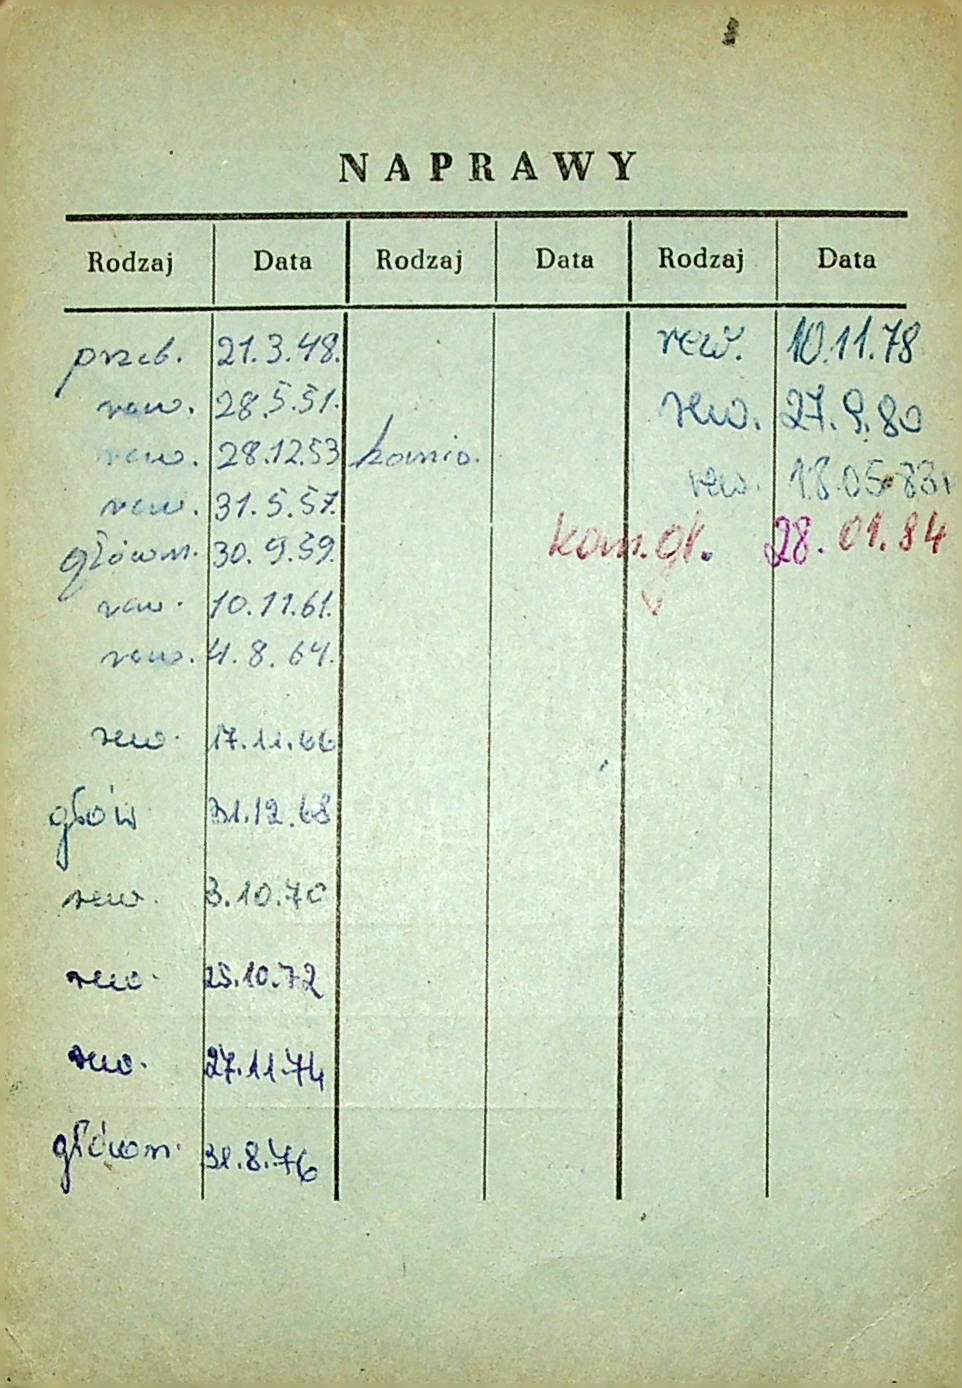 NAPRAWY
Rodzaj Data Rodzaj Data Rodzaj Data
przeb. 21.3.48. rew. 10.11.78
rew. 28.5.51. rew. 27.9.80
rew. 28.12.53 rew. 18.05.83r
rew. 31.5.57.
główn. 30.9.59. kom.gł. 28.01.84
rew. 10.11.61.
rew. 4.8.64.
rew. 17.11.66
głów 31.12.68
rew. 3.10.70
rew. 25.10.72
rew. 27.11.74
główn. 31.8.76